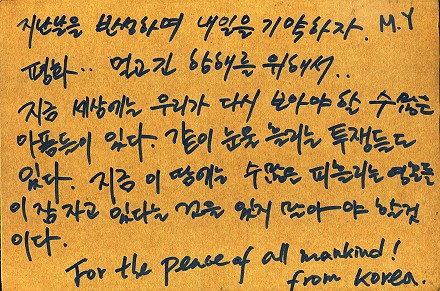 지난날을 반성하며 내일을 기약하자. M.Y
평화.. 멀고긴 항해를 위해서..
지금 세상에는 우리가 다시 보아야 할 수많은
아픔들이 있다. 같이 눈물 흘리는 투쟁들도
있다. 지금 이 땅에는 수많은 피흘리는 영혼들
이 잠자고 있다는 것을 잊지 말아야 할것
이다.
For the peace of all mankind!
from Korea.